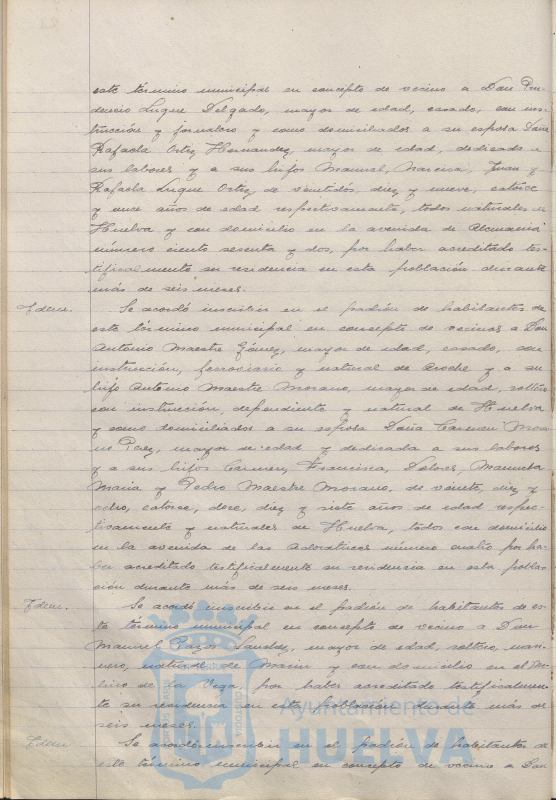 este término municipal en concepto de vecino a Don Pru
dencio Luque Delgado, mayor de edad, casado, con ins-
trucción y jornalero y como domiciliados a su esposa Doña
Rafaela Ortiz Hernandez, mayor de edad, dedicada a
sus labores y a sus hijos Manuel, Narcisa, Juan y
Rafaela Luque Ortiz, de veintidós, diez y nueve, catorce
y once años de edad respectivamente, todos naturales de
Huelva y con domicilio en la avenida de Alemania
número ciento sesenta y dos, por haber acreditado tes-
tificalmente su residencia en esta población durante
más de seis meses.
Idem. Se acordó inscribir en el padrón de habitantes de
este término municipal en concepto de vecinos a Don
Antonio Maestre Gómez, mayor de edad, casado, con
instrucción, ferroviario y natural de Aroche y a su
hijo Antonio Maestre Morano, mayor de edad, soltero
con instrucción, dependiente y natural de Huelva
y como domiciliados a su esposa Doña Carmen Mora
no Perez, mayor de edad y dedicada a sus labores
y a sus hijos Carmen, Francisca, Dolores, Manuela
Maria y Pedro Maestre Morano, de veinte, diez y
ocho, catorce, doce, diez y siete años de edad respec-
tivamente y naturales de Huelva, todos con domicilio
en la avenida de las Adoratrices número cuatro por ha-
ber acreditado testificalmente su residencia en esta pobla-
ción durante más de seis meses.
Idem. Se acordó inscribir en el padrón de habitantes de es-
te término municipal en concepto de vecino a Don
Manuel Pazos Sanchez, mayor de edad, soltero, mari-
nero, natural de Marin y con domicilio en el Mo-
lino de la Vega, por haber acreditado testificalmen-
te su residencia en esta población durante más de
seis meses.
Idem Se acordó inscribir en el padrón de habitantes de
este término municipal en concepto de vecino a Don
Ayuntamiento de
HUELVA